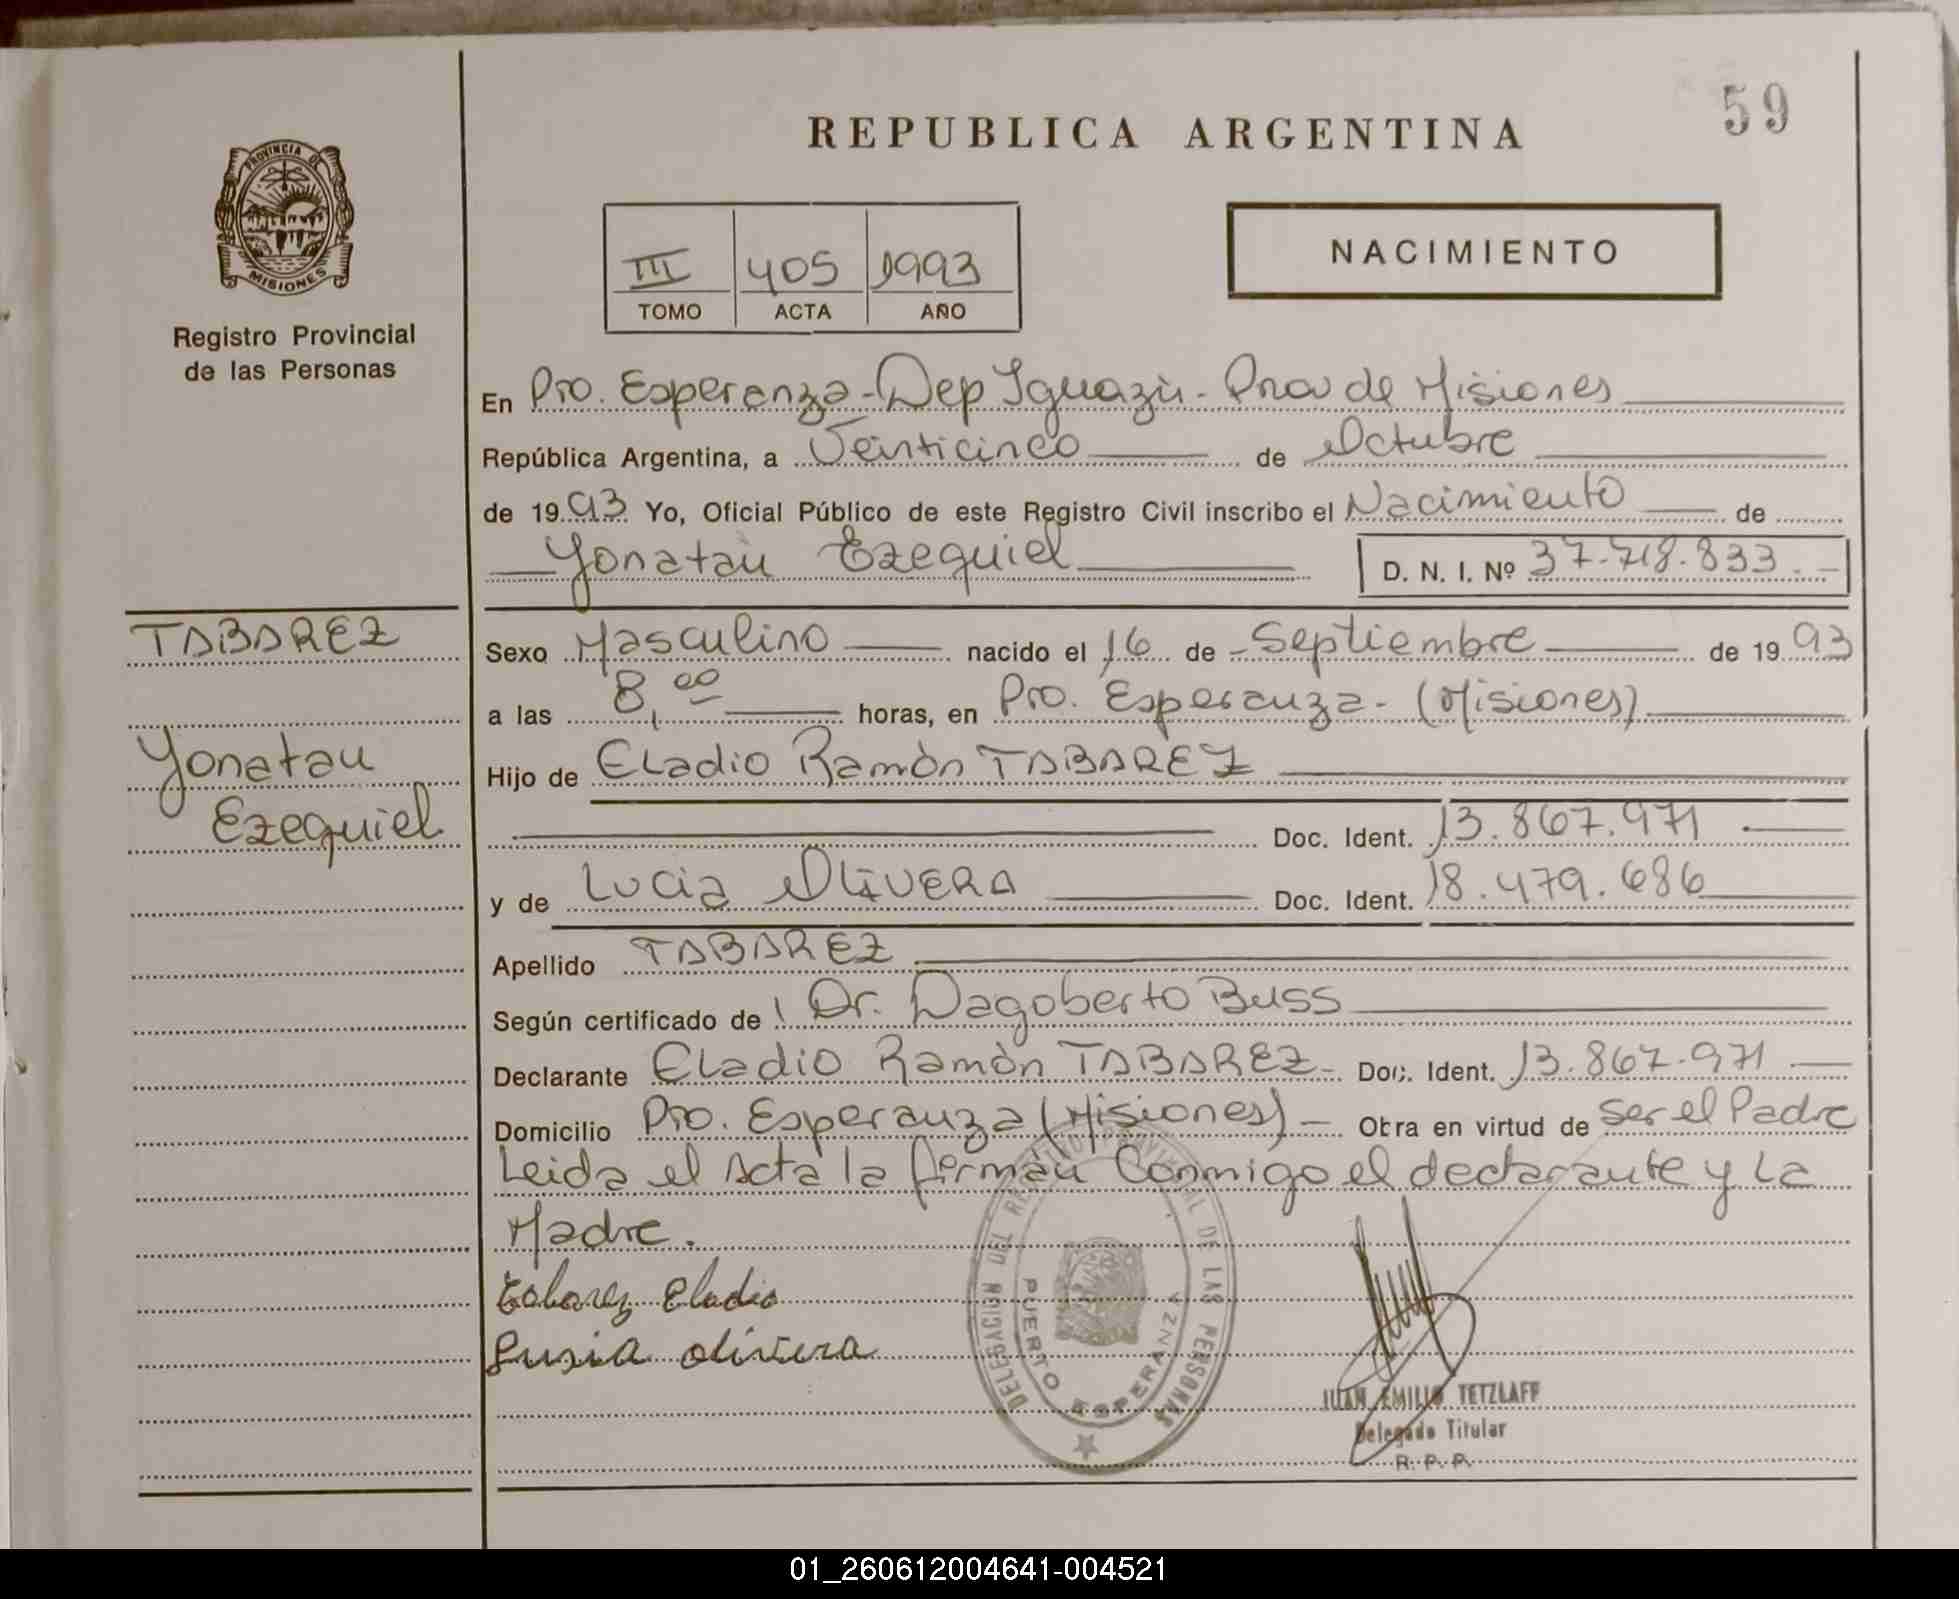 59
REPUBLICA ARGENTINA
PROVINCIA DE
MISIONES
Registro Provincial
de las Personas
III 405 1993
TOMO ACTA AÑO
NACIMIENTO
En Pto. Esperanza - Dep Iguazù - Prov de Misiones
República Argentina, a Veinticinco de Octubre
de 1993 Yo, Oficial Público de este Registro Civil inscribo el Nacimiento de
Yonatan Ezequiel D. N. I. Nº 37.718.833.-
TABAREZ
Yonatan
Ezequiel
Sexo Masculino nacido el 16 de Septiembre de 1993
a las 8,00 horas, en Pto. Esperanza - (Misiones)
Hijo de Eladio Ramòn TABAREZ
Doc. Ident. 13.867.971
y de Lucia OLIVERA Doc. Ident. 18.479.686
Apellido TABAREZ
Según certificado de Dr. Dagoberto Buss
Declarante Eladio Ramòn TABAREZ - Doc. Ident. 13.867.971
Domicilio Pto. Esperanza (Misiones) - Obra en virtud de ser el Padre
Leida el Acta la firman Conmigo el declarante y La
Madre.
Tabarez Eladio
Lusia olivera
DELEGACION DEL REGISTRO PROVINCIAL DE LAS PERSONAS
PUERTO ESPERANZA
JUAN EMILIO TETZLAFF
Delegado Titular
R. P. P.
01_260612004641-004521